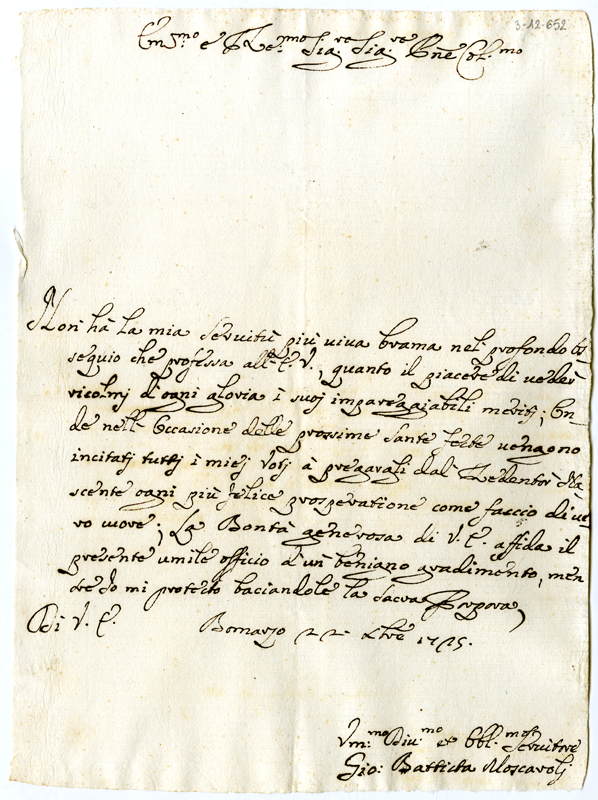 3-12-652
Em.mo e R.e.mo Sig.re Sig.re Pne Col.mo
Non hà la mia servitù più viva brama nel profondo os
sequio che professa all' E. V., quanto il piacere di veder
ricolmj d'ogni gloria i suoj impareggiabili meritj; On
de nell' Occasione delle prossime Sante feste vengono
incitatj tuttj i miej Votj à pregargli dal Redentor Na
scente ogni più felice prosperatione come faccio di ve
ro cuore; La Bontà generosa di V. E. affida il
presente umile officio d'un benigno gradimento, men
tre Io mi protesto baciandole la Sacra Porpora,
Di V. E.
Bomarzo 22 Xbre 1715.
Vm.mo Div.mo et Obl.mo Servitore
Gio: Battista Moscarolj